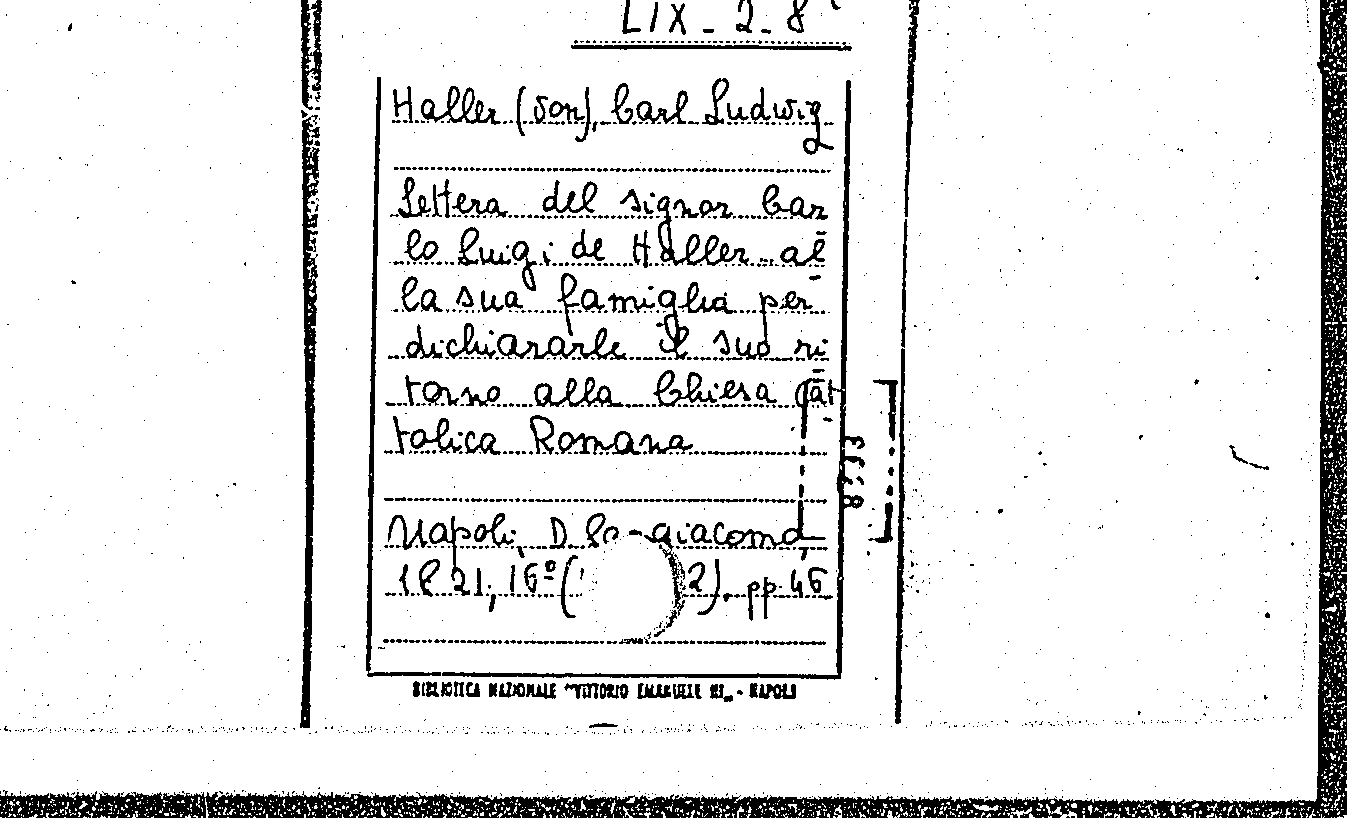 LIX - 2 - 8
Haller (von), Carl Ludwig
Lettera del signor Car
lo Luigi de Haller al
la sua famiglia per
dichiararle il suo ri
torno alla Chiesa Cat
tolica Romana
Napoli, D giacomo,
1821, 16º ( 2). pp. 46
BIBLIOTECA NAZIONALE "VITTORIO EMANUELE III„ - NAPOLI